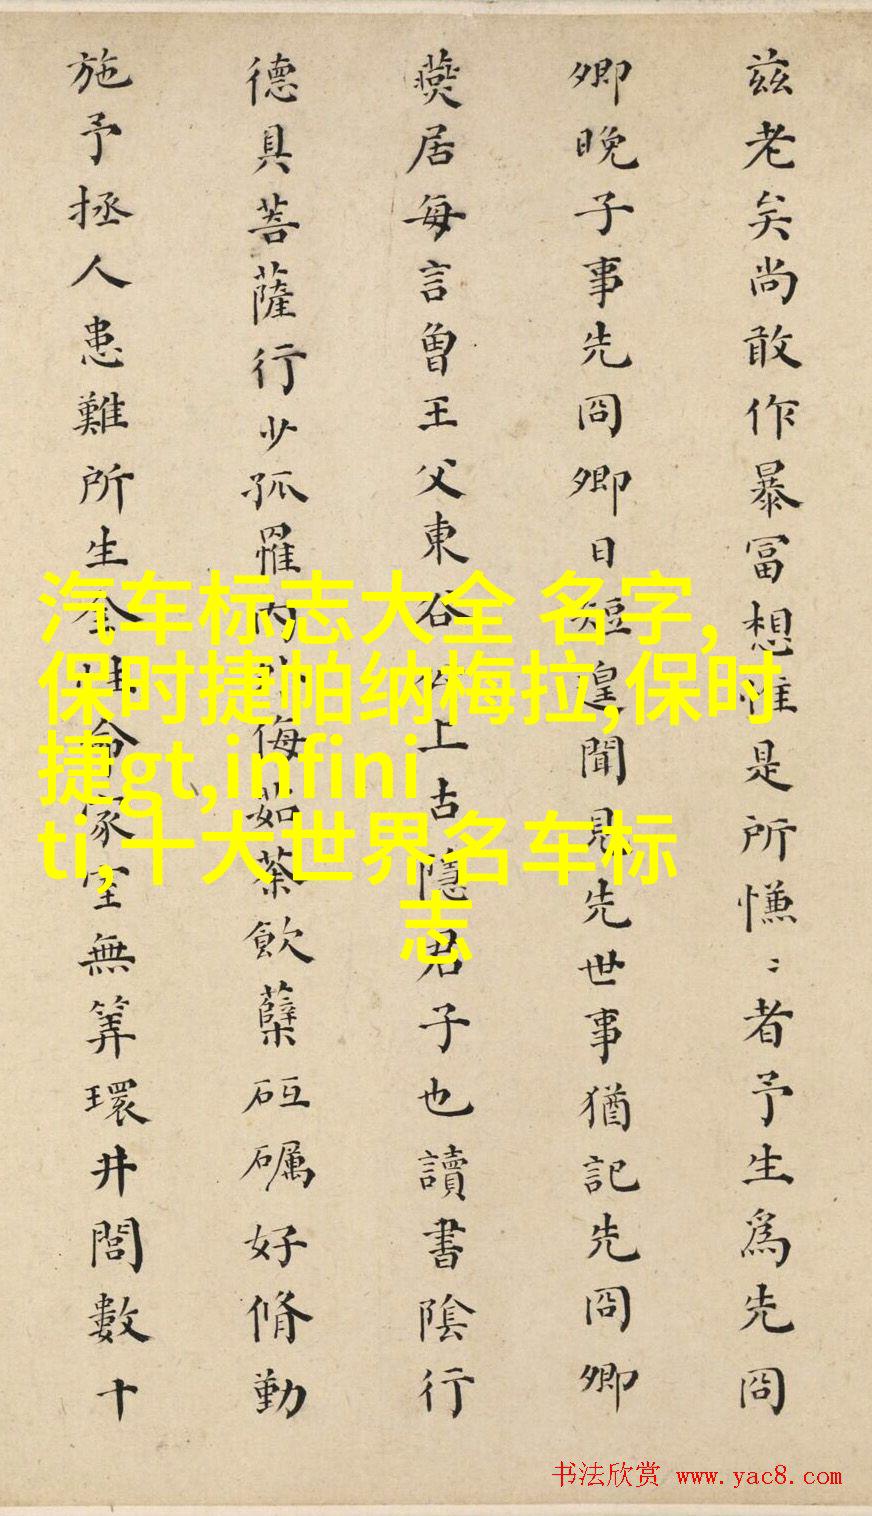 兹老矣尚敢作暴富想惟是所慊〻者予生為先冏
卿晚子事先冏卿日短遑聞見先世事猶記先冏卿
燕居每言曾王父東谷上古隱君子也讀書陰行
德具菩薩行少孤罹内外侮茹荼飲蘗砥礪好脩勤
施予拯人患難所生全性命家室無筭環井閭數十
汽车标志大全 名字,
保时捷帕纳梅拉,保时
捷gt,infini
ti,十大世界名车标
志
书法欣赏 www.yac8.com